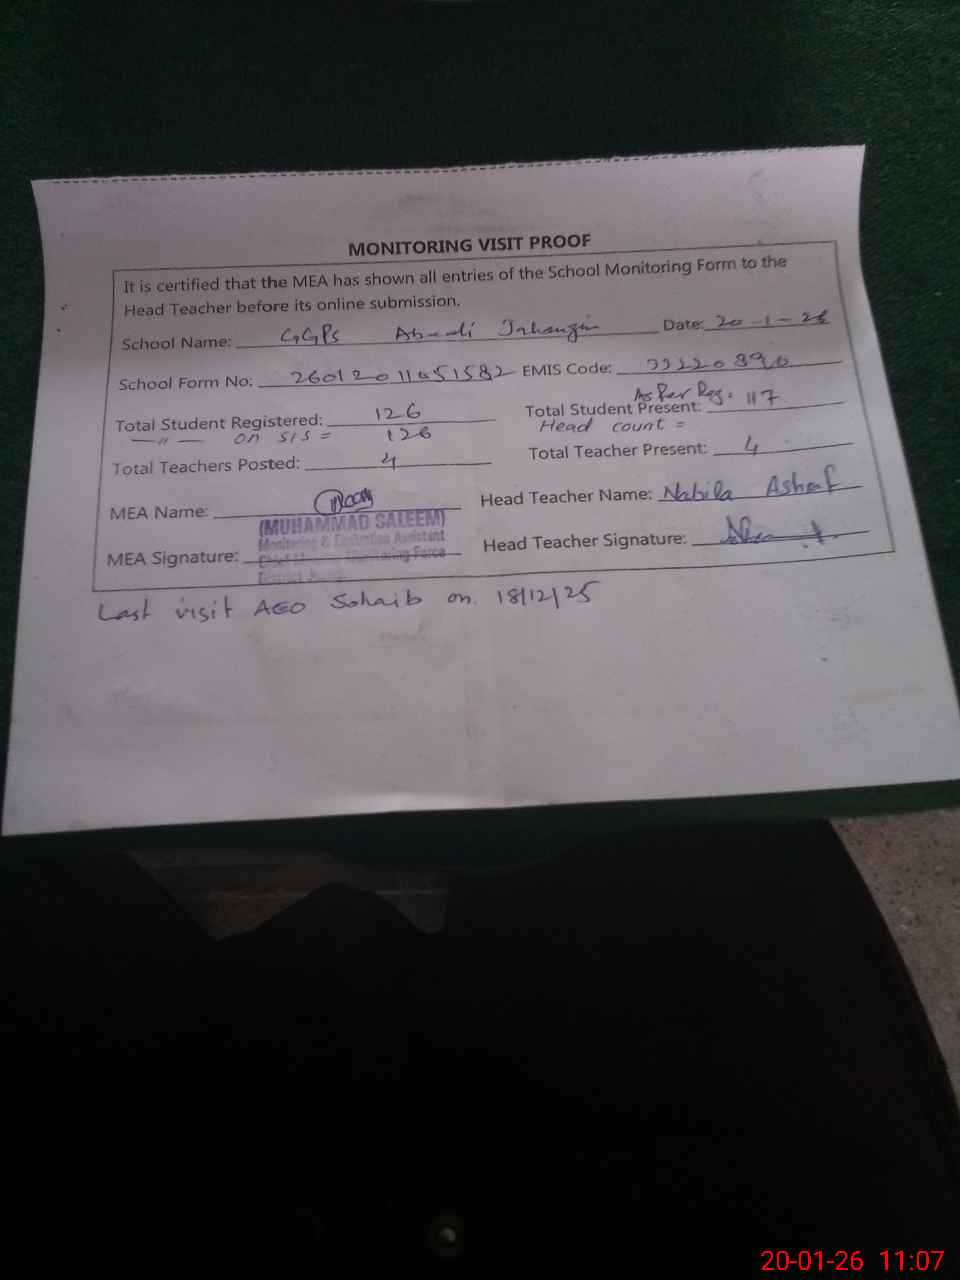 MONITORING VISIT PROOF
It is certified that the MEA has shown all entries of the School Monitoring Form to the
Head Teacher before its online submission.
School Name: GGPS Abadi Jahangir Date: 20-1-26
School Form No: 26012011051582 EMIS Code: 33220890
As Per Reg:
Total Student Registered: 126 Total Student Present: 117
—〃— on SIS = 126 Head count =
Total Teachers Posted: 4 Total Teacher Present: 4
MEA Name: Head Teacher Name: Nabila Ashraf
(MUHAMMAD SALEEM)
Monitoring & Evaluation Assistant
MEA Signature: Chief Minister Monitoring Force Head Teacher Signature:
District
Last visit AEO Sohaib on 18/12/25
20-01-26 11:07